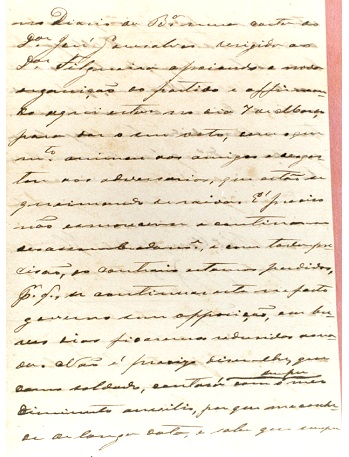 no Diario do Bo. uma carta do
Dor José Gonsalves dirigido ao
Dor Filgueira apoiando a nova
organização do partido e affirman
do aqui estar no dia 7 de Março
para dar o seu voto, com o que
mto. animou aos amigos e desgos
tou aos adversarios, que estão se
queimando de raiva. E' preciso
não esmorecer e continuar
desassombradamte, e com toda pre
cisão, do contrario estamos perdidos,
P. S., se continuar este nefasto
governo sem opposição, em bre
ves dias ficaremos redusidos a na
da. Não é preciso dizer lhe, que
como soldado, contará com o meu
diminuto auxilio, por que me conhe
ce de longa data, e sabe que sempre